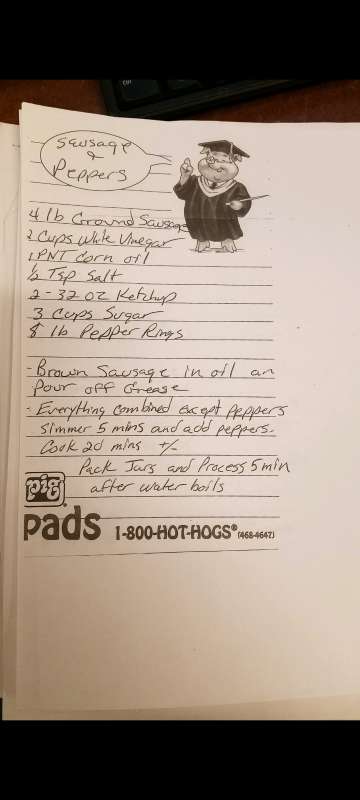 Sausage
&
Peppers
4 lb Ground Sausage
2 Cups White Vinegar
1 PNT Corn oil
1/2 Tsp Salt
2 - 32 oz Ketchup
3 Cups Sugar
8 lb Pepper Rings
- Brown Sausage in oil an
Pour off Grease
- Everything combined except Peppers
Simmer 5 mins and add peppers.
Cook 20 mins +/-
Pack Jars and Process 5 min
after water boils
pig
pads 1-800-HOT-HOGS® (468-4647)